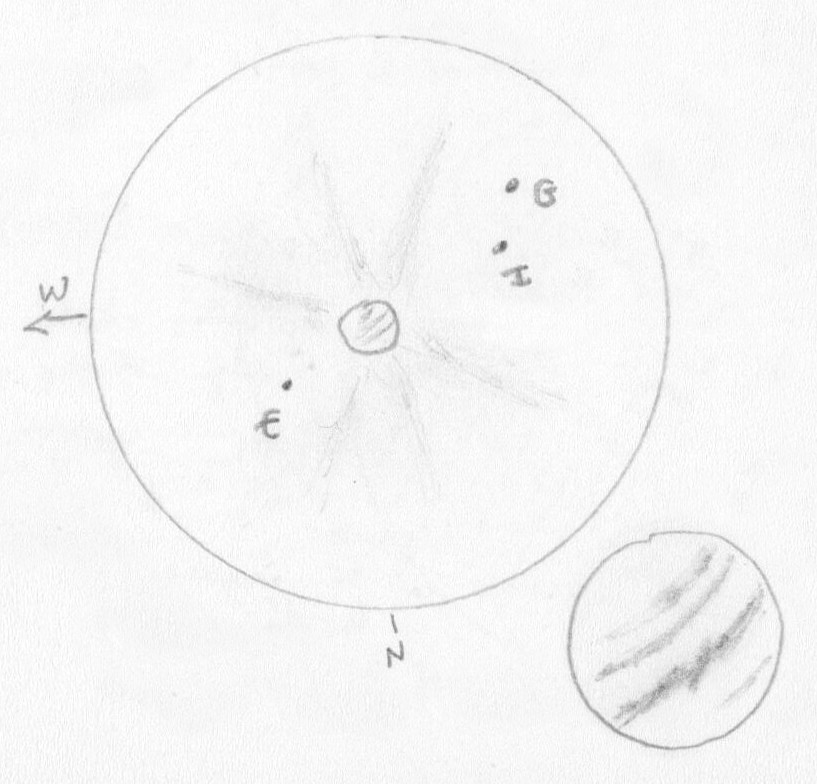 G
I
W
E
N